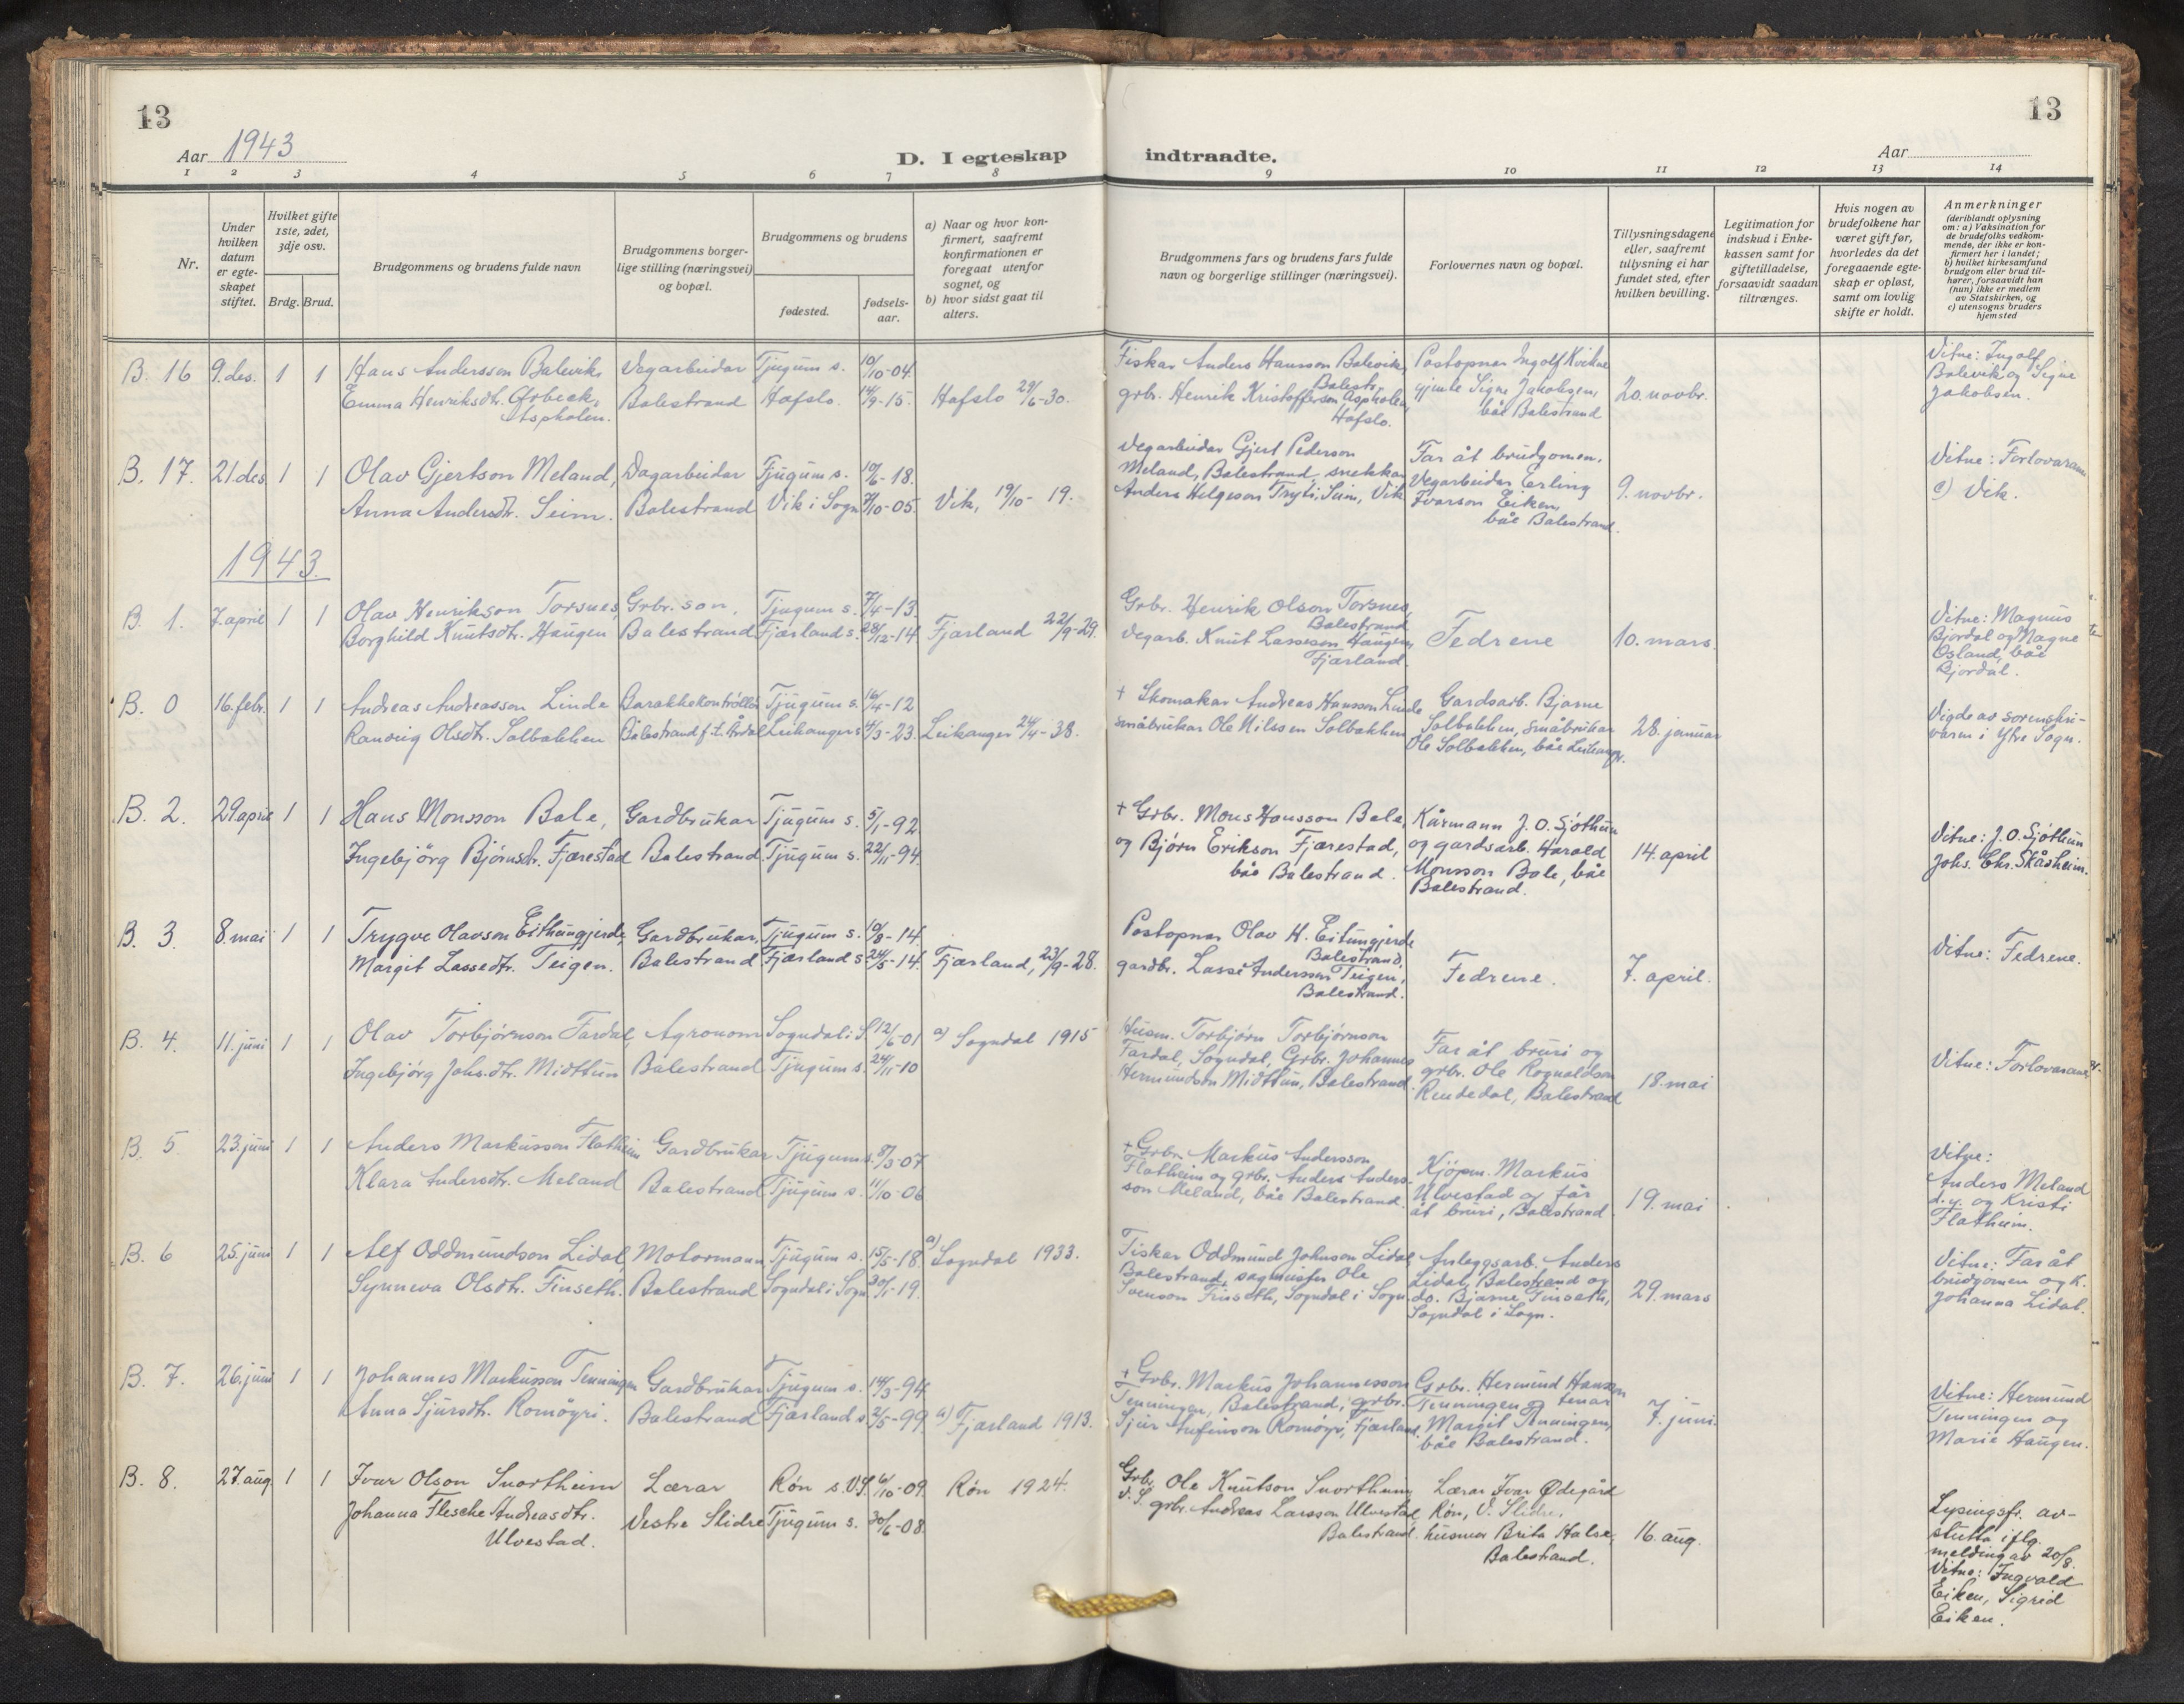 13
13
Aar 1943
D. I egteskap indtraadte.
Aar
1 2 3 4 5 6 7 8 9 10 11 12 13 14
Nr.
Under hvilken datum er egte-skapet stiftet.
Hvilket gifte 1ste, 2det, 3dje osv.
Brdg. Brud.
Brudgommens og brudens fulde navn
Brudgommens borger-lige stilling (næringsvei) og bopæl.
Brudgommens og brudens
fødested.
fødsels-aar.
a) Naar og hvor kon-firmert, saafremt konfirmationen er foregaat utenfor sognet, og
b) hvor sidst gaat til alters.
Brudgommens fars og brudens fars fulde navn og borgerlige stillinger (næringsvei).
Forlovernes navn og bopæl.
Tillysningsdagene eller, saafremt tillysning ei har fundet sted, efter hvilken bevilling.
Legitimation for indskud i Enke-kassen samt for giftetilladelse, forsaavidt saadan tiltrænges.
Hvis nogen av brudefolkene har været gift før, hvorledes da det foregaaende egte-skap er opløst, samt om lovlig skifte er holdt.
Anmerkninger
(deriblandt oplysning om: a) Vaksination for de brudefolks vedkom-mende, der ikke er kon-firmert her i landet;
b) hvilket kirkesamfund brudgom eller brud til-hører, forsaavidt han (hun) ikke er medlem av Statskirken, og
c) utensogns bruders hjemsted
B. 16 9. des. 1 1 Hans Andersson Balevik, Vegarbeidar Tjugum s. 10/10-04
Emma Henriksdt. Ørbeck, Balestrand Hafslo. 14/9-15. Hafslo 29/6-30.
Aspholen.
Fiskar Anders Hansson Balevik, Balestr.
grbr. Henrik Kristofferson Aspholen, Hafslo.
Postopnar Ingolf Kvikne
gjente Signe Jakobsen,
båe Balestrand
20. novbr.
Vitne: Ingolf
Balevik og Signe
Jakobsen.
B. 17. 21. des 1 1 Olav Gjertson Meland, Dagarbeidar Tjugum s. 10/6-18.
Anna Andersdt. Seim. Balestrand Vik i Sogn 7/10-05. Vik, 19/10-19.
Vegarbeidar Gjert Pederson
Meland, Balestrand, snekkar
Anders Helgeson Tryti, Seim, Vik
Far åt brudgomen.
Vegarbeidar Erling
Ivarson Eiken,
båe Balestrand.
9. novbr.
Vitne: Forlovarane
c) Vik.
1943.
B. 1. 7. april 1 1 Olav Henrikson Torsnes, Grbr. son, Tjugum s. 7/4-13
Borghild Knutsdt. Haugen Balestrand Fjærland s. 28/12-14 Fjærland 22/9-29.
Grbr. Henrik Olson Torsnes,
Balestrand
Vegarb. Knut Lasseson Haugen,
Fjærland.
Fedrene
10. mars.
Vitne: Magnus
Bjordal og Magne
Osland, båe
Bjordal.
B. 0 16. febr. 1 1 Andreas Andreasson Linde Barakkekontrollør Tjugum s. 16/4-12
Ranveig Olsdt. Solbakken Balestrand f.t. Årdal Leikanger s. 4/3-23. Leikanger 24/4-38.
+ Skomakar Andreas Hansson Linde
småbrukar Ole Nilssen Solbakken
Gardsarb. Bjarne
Solbakken, småbrukar
Ole Solbakken, båe Leikangr.
28. januar
Vigde av sorenskri-
varen i Ytre Sogn.
B. 2. 29. april 1 1 Hans Monsson Bale, Gardbrukar Tjugum s. 5/1-92
Ingebjörg Bjørnsdt. Fjærestad Balestrand Tjugum s. 22/11-94
+ Grbr. Mons Hansson Bale,
og Bjørn Erikson Fjærestad,
båe Balestrand.
Kårmann J. O. Sjøthun
og gardsarb. Harald
Monsson Bale, båe
Balestrand.
14. april
Vitne: J. O. Sjøthun
Johs. Chr. Skåsheim.
B. 3. 8. mai 1 1 Trygve Olavson Eithungjerde, Gardbrukar, Tjugum s. 10/8-14.
Margit Lassedtr. Teigen. Balestrand Fjærland s. 24/5-14. Fjærland, 23/9-28.
Postopnar Olav H. Eitungjerde
Balestrand,
gardbr. Lasse Andersson Teigen,
Balestrand.
Fedrene.
7. april.
Vitne: Fedrene.
B. 4. 11. juni 1 1 Olav Torbjørnson Fardal, Agronom Sogndal i S. 12/6-01 a) Sogndal 1915
Ingebjörg Johs.dt. Midttun Balestrand Tjugum s. 24/11-10
Husm. Torbjørn Torbjørnson
Fardal, Sogndal, Grbr. Johannes
Hermundson Midttun, Balestrand.
Far åt bruri og
grbr. Ole Rognaldson
Rendedal, Balestrand
18. mai
Vitne: Forlovarane
B. 5. 23. juni 1 1 Anders Markusson Flatheim Gardbrukar Tjugum s. 8/3-07
Klara Andersdt. Meland Balestrand Tjugum s. 11/10-06
+ Grbr. Markus Andersson
Flatheim og grbr. Anders Anders-
son Meland, båe Balestrand.
Kjöpm. Markus
Ulvestad og far
åt bruri, Balestrand
19. mai
Vitne:
Anders Meland
d.y. og Kristi
Flatheim.
B. 6 25. juni 1 1 Alf Oddmundson Lidal, Motormann Tjugum s. 15/5-18. a) Sogndal 1933.
Synneva Olsdt. Finseth. Balestrand Sogndal i Sogn 30/1-19.
Fiskar Oddmund Johnson Lidal
Balestrand, sagmeister Ole
Svenson Finseth, Sogndal i Sogn.
Anleggsarb. Anders
Lidal, Balestrand og
do. Bjarne Finseth,
Sogndal i Sogn.
29. mars
Vitne: Far åt
brudgomen og k.
Johanna Lidal.
B. 7. 26. juni 1 1 Johannes Markusson Tenningen Gardbrukar Tjugum s. 14/3-94
Anna Sjursdt. Romöyri. Balestrand Fjærland s. 2/5-99 a) Fjærland 1913.
+ Grbr. Markus Johannesson
Tenningen, Balestrand, grbr.
Sjur Anfinson Romöyri, Fjærland.
Grbr. Hermund Hansson
Tenningen og tenar
Margit Tenningen,
båe Balestrand.
7. juni.
Vitne: Hermund
Tenningen og
Marie Haugen.
B. 8. 27. aug. 1 1 Ivar Olson Snortheim Lærar Røn s. V.S. 6/10-09. Røn 1924.
Johanna Flesche Andreasdtr. Vestre Slidre Tjugum s. 30/6-08.
Ulvestad.
Grbr. Ole Knutson Snortheim,
V. S. grbr. Andreas Larsson Ulvestad,
Balestrand.
Lærar Ivar Ødegård
Røn, V. Slidre.
husmor Brita Halse,
Balestrand.
16. aug.
Lysingsfr. av-
slutta iflg.
melding av 20/8.
Vitne: Ingvald
Eiken, Sigrid
Eiken.